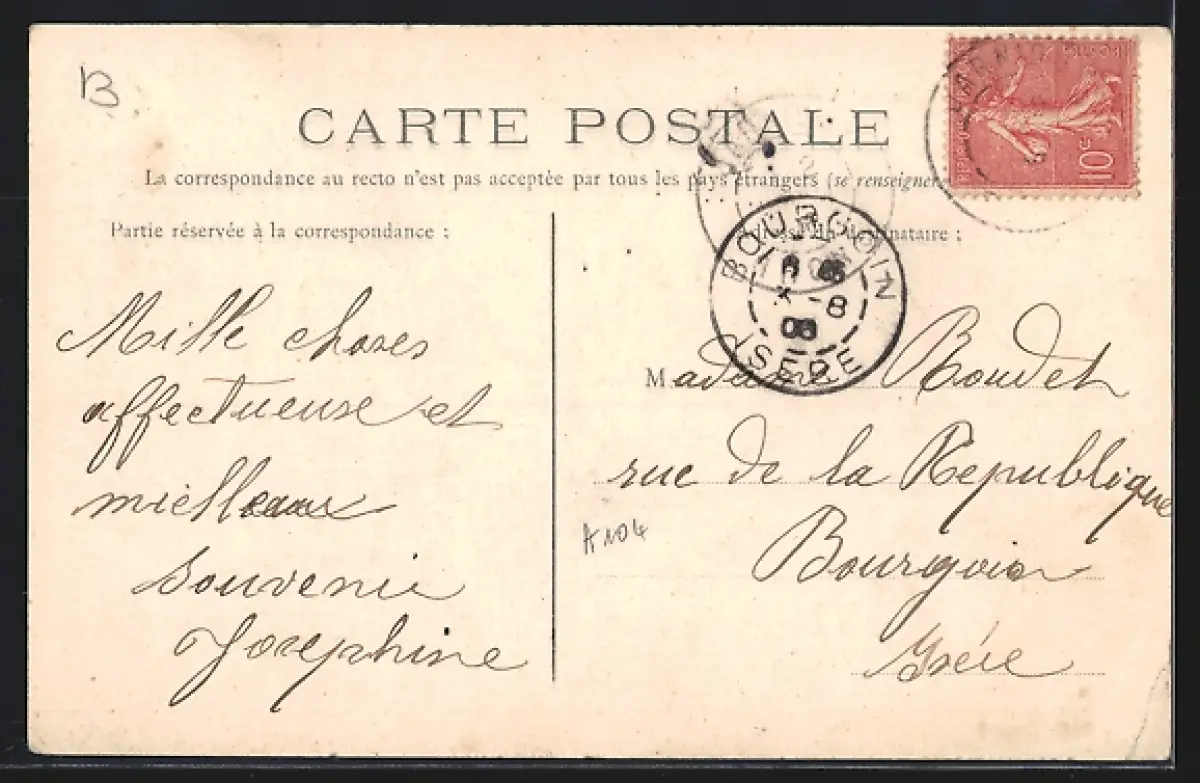 B
CARTE POSTALE
La correspondance au recto n'est pas acceptée par tous les pays étrangers (se renseigner
Partie réservée à la correspondance :
Mille choses
affectueuse et
mielleaux
Souvenir
Josephine
10c
BOURGOIN
8
ISERE
Madame Boudet
rue de la Republique
Bourgoin
Isère
A104